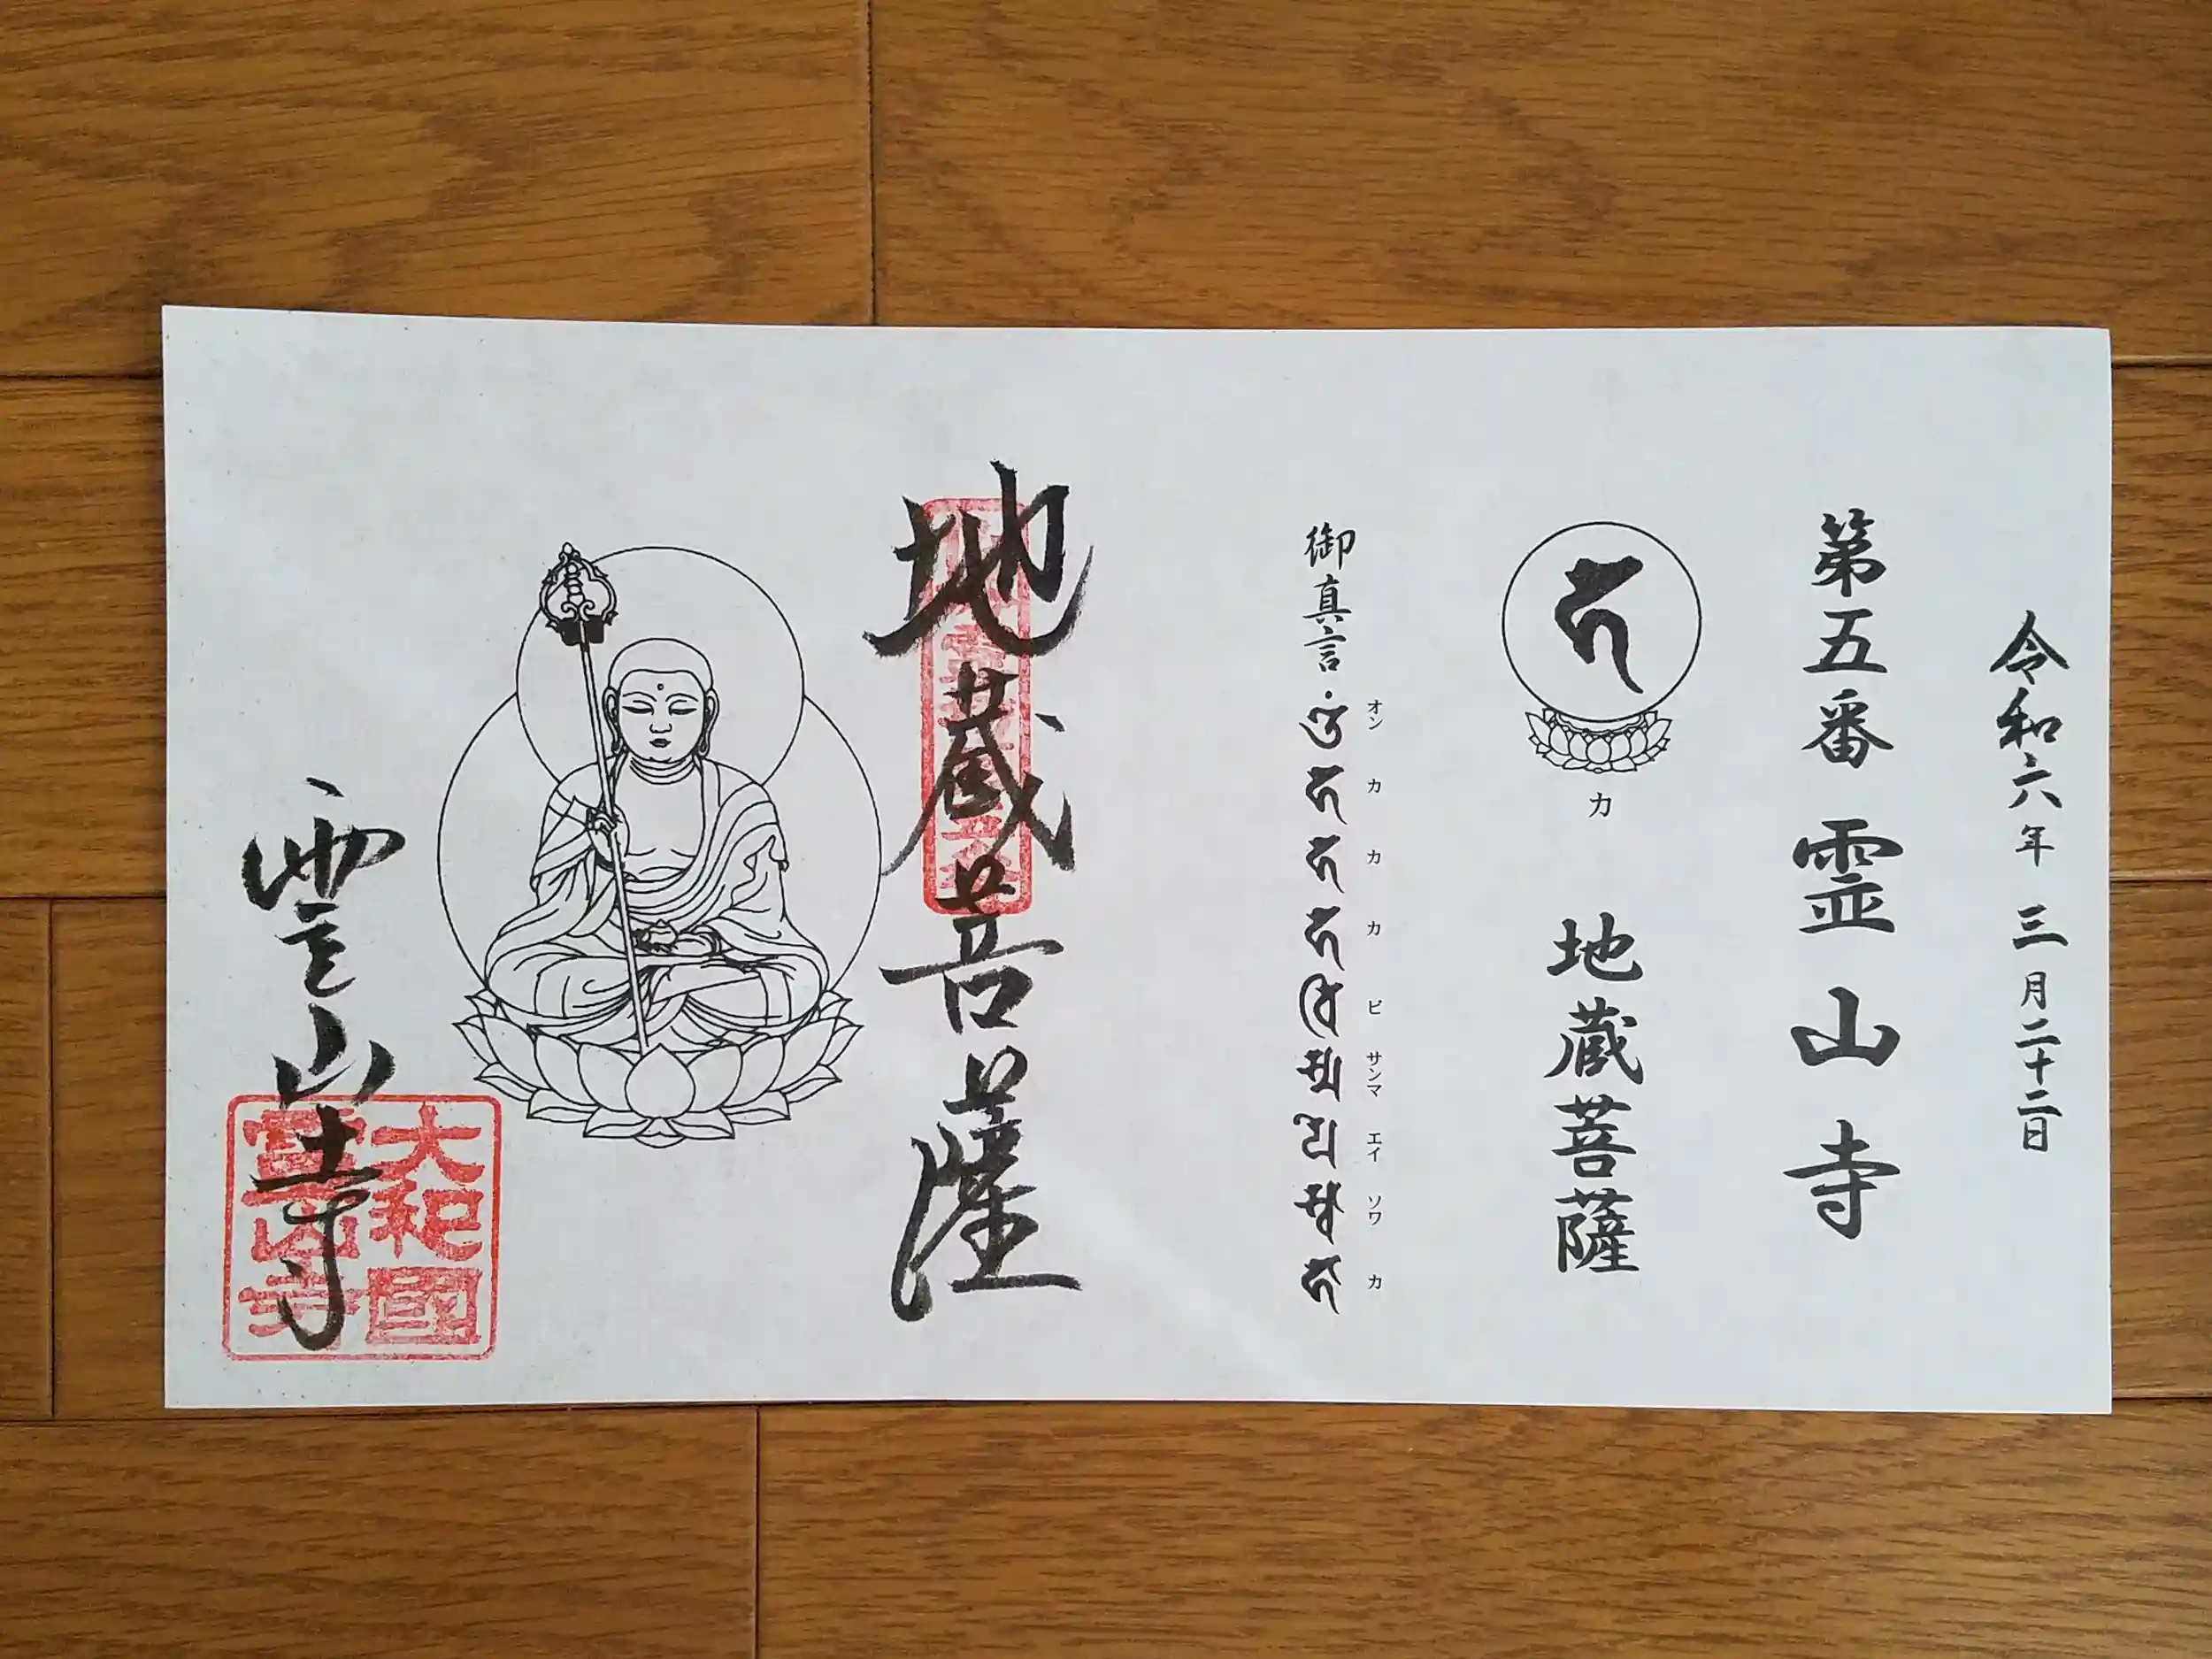 令和六年 三月二十二日
第五番 霊山寺
カ
地蔵菩薩
御真言
オン カ カ カ ビ サンマ エイ ソワ カ
地蔵菩薩
霊山寺
大和國
霊山寺